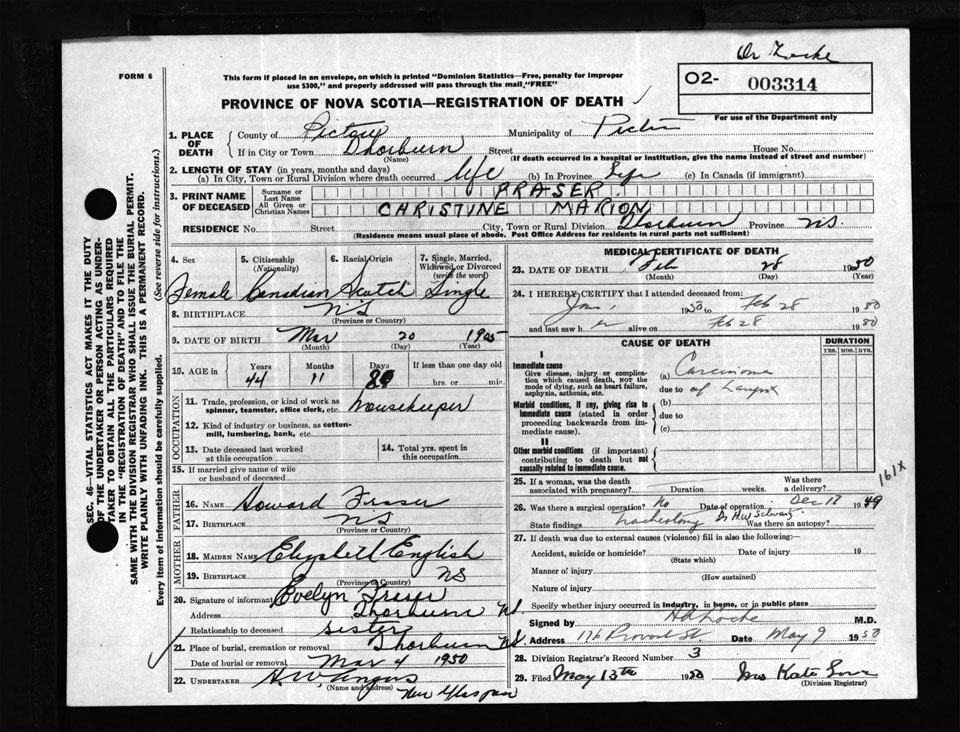 Dr Locke
FORM 6
This form if placed in an envelope, on which is printed "Dominion Statistics—Free, penalty for improper
use $300," and properly addressed will pass through the mail "FREE"
O2-
003314
For use of the Department only
PROVINCE OF NOVA SCOTIA—REGISTRATION OF DEATH
1. PLACE OF DEATH
County of Pictou Municipality of Pictou
If in City or Town Thorburn Street House No.
(Name) (If death occurred in a hospital or institution, give the name instead of street and number)
2. LENGTH OF STAY (in years, months and days)
(a) In City, Town or Rural Division where death occurred life (b) In Province Life (c) In Canada (if immigrant)
3. PRINT NAME OF DECEASED
Surname or Last Name FRASER
All Given or Christian Names CHRISTINE MARION
RESIDENCE No. Street City, Town or Rural Division Thorburn Province NS.
(Residence means usual place of abode. Post Office Address for residents in rural parts not sufficient)
4. Sex
5. Citizenship (Nationality)
6. Racial Origin
7. Single, Married, Widowed or Divorced (write the word)
Female Canadian Scotch Single
8. BIRTHPLACE NS
(Province or Country)
9. DATE OF BIRTH Mar 20 1905
(Month) (Day) (Year)
10. AGE in Years Months Days If less than one day old
44 11 8 hrs. or min.
OCCUPATION
11. Trade, profession, or kind of work as spinner, teamster, office clerk, etc. housekeeper
12. Kind of industry or business, as cotton-mill, lumbering, bank, etc.
13. Date deceased last worked at this occupation
14. Total yrs. spent in this occupation
15. If married give name of wife or husband of deceased
FATHER
16. Name Howard Fraser
17. Birthplace NS
(Province or Country)
MOTHER
18. Maiden Name Elizabeth English
19. Birthplace NS
(Province or Country)
20. Signature of informant Evelyn Fraser
Address Thorburn NS
Relationship to deceased sister
21. Place of burial, cremation or removal Thorburn NS
Date of burial or removal Mar 4 1950
22. UNDERTAKER H.W. Angus
(Name and address) New Glasgow
MEDICAL CERTIFICATE OF DEATH
23. DATE OF DEATH Feb 28 1950
(Month) (Day) (Year)
24. I HEREBY CERTIFY that I attended deceased from:
Jan, 1950 to Feb 28 1950
and last saw her alive on Feb 28 1950
CAUSE OF DEATH
DURATION
YRS. MOS. DYS.
I
Immediate cause
Give disease, injury or complication which caused death, not the mode of dying, such as heart failure, asphyxia, asthenia, etc.
(a) Carcinoma
due to of Larynx
Morbid conditions, if any, giving rise to immediate cause (stated in order proceeding backwards from immediate cause).
(b)
due to
(c)
II
Other morbid conditions (if important) contributing to death but not causally related to immediate cause.
25. If a woman, was the death associated with pregnancy? Duration weeks. Was there a delivery?
161X
26. Was there a surgical operation? No Date of operation Dec 17 1949
State findings tracheotomy Dr H.W. Schwartz Was there an autopsy?
27. If death was due to external causes (violence) fill in also the following:—
Accident, suicide or homicide? Date of injury 19
(State which)
Manner of injury
(How sustained)
Nature of injury
Specify whether injury occurred in industry, in home, or in public place
Signed by Locke M.D.
Address 176 Provost St. Date May 9 1950
28. Division Registrar's Record Number 3
29. Filed May 13th 1950 Mrs Kate
(Division Registrar)
SEC. 46—VITAL STATISTICS ACT MAKES IT THE DUTY
OF THE UNDERTAKER OR PERSON ACTING AS UNDER-
TAKER TO OBTAIN ALL THE PARTICULARS REQUIRED
IN THE "REGISTRATION OF DEATH" AND TO FILE THE
SAME WITH THE DIVISION REGISTRAR WHO SHALL ISSUE THE BURIAL PERMIT.
WRITE PLAINLY WITH UNFADING INK. THIS IS A PERMANENT RECORD.
Every item of information should be carefully supplied. (See reverse side for instructions.)